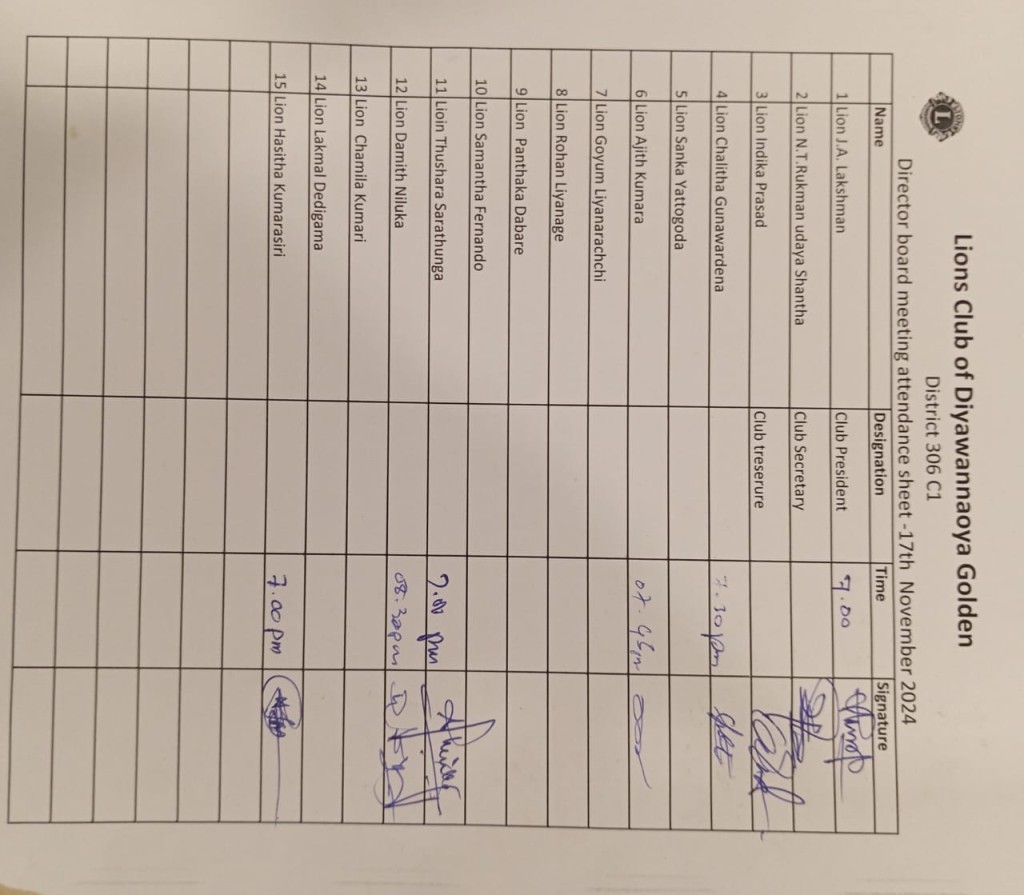 Lions Club of Diyawannaoya Golden
District 306 C1
Director board meeting attendance sheet -17th November 2024
Name Designation Time Signature
1 Lion J.A. Lakshman Club President 7.00
2 Lion N.T.Rukman udaya Shantha Club Secretary
3 Lion Indika Prasad Club treserure
4 Lion Chalitha Gunawardena 7.30pm
5 Lion Sanka Yattogoda
6 Lion Ajith Kumara
7 Lion Goyum Liyanarachchi
8 Lion Rohan Liyanage
9 Lion Panthaka Dabare
10 Lion Samantha Fernando
11 Lioin Thushara Sarathunga 7.00 pm
12 Lion Damith Niluka 08.30pm
13 Lion Chamila Kumari
14 Lion Lakmal Dedigama
15 Lion Hasitha Kumarasiri 7.00pm